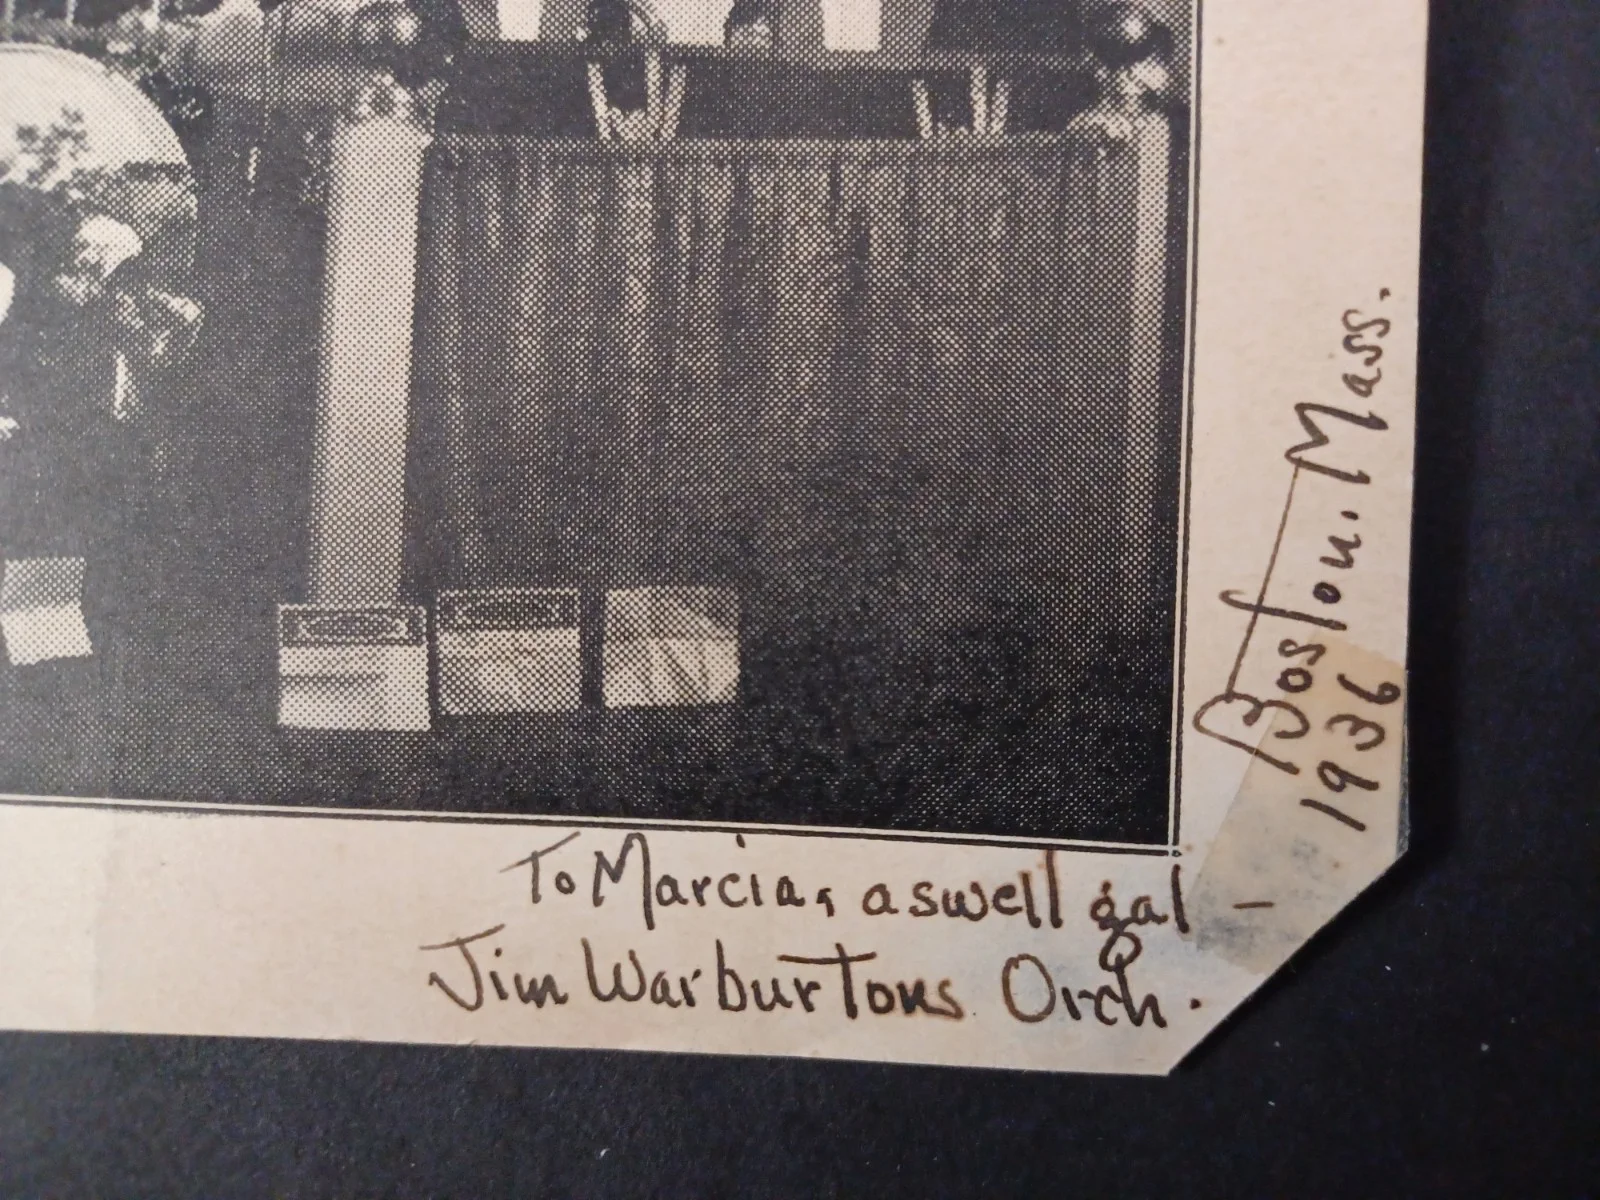 To Marcia, a swell gal –
Jim Warburtons Orch.
Boston. Mass.
1936